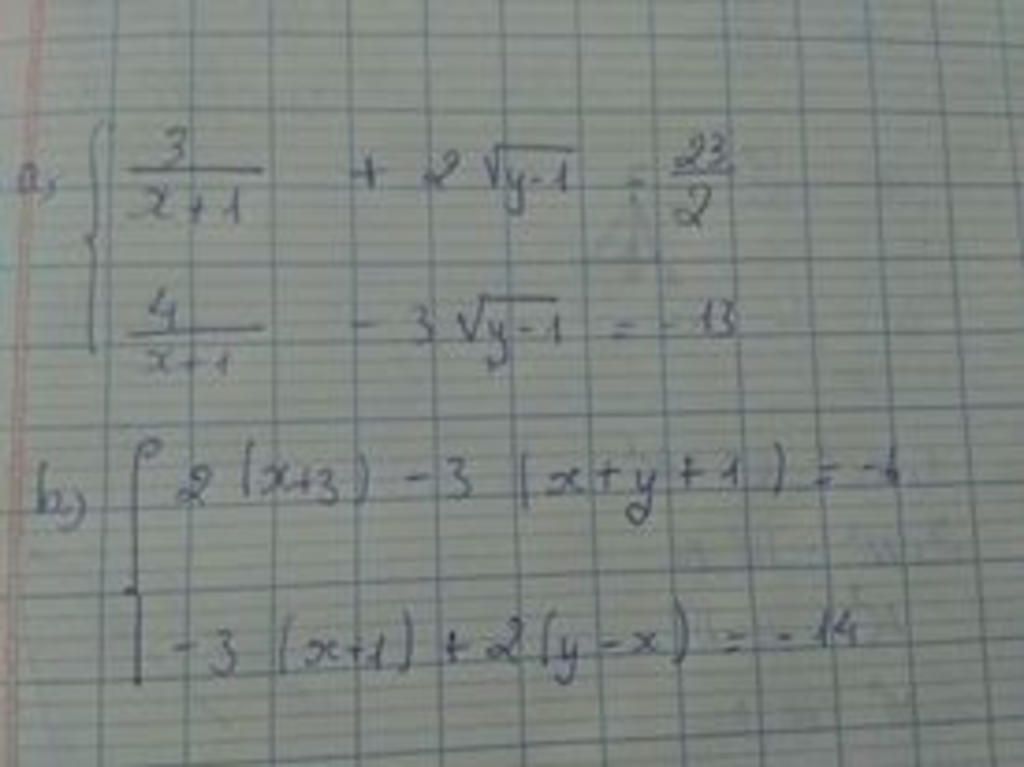 a, { 3/(x+1) + 2√(y-1) = 23/2
4/(x+1) - 3√(y-1) = -13
b,) { 2(x+3) - 3(x+y+1) =
-3(x+1) + 2(y-x) = -14